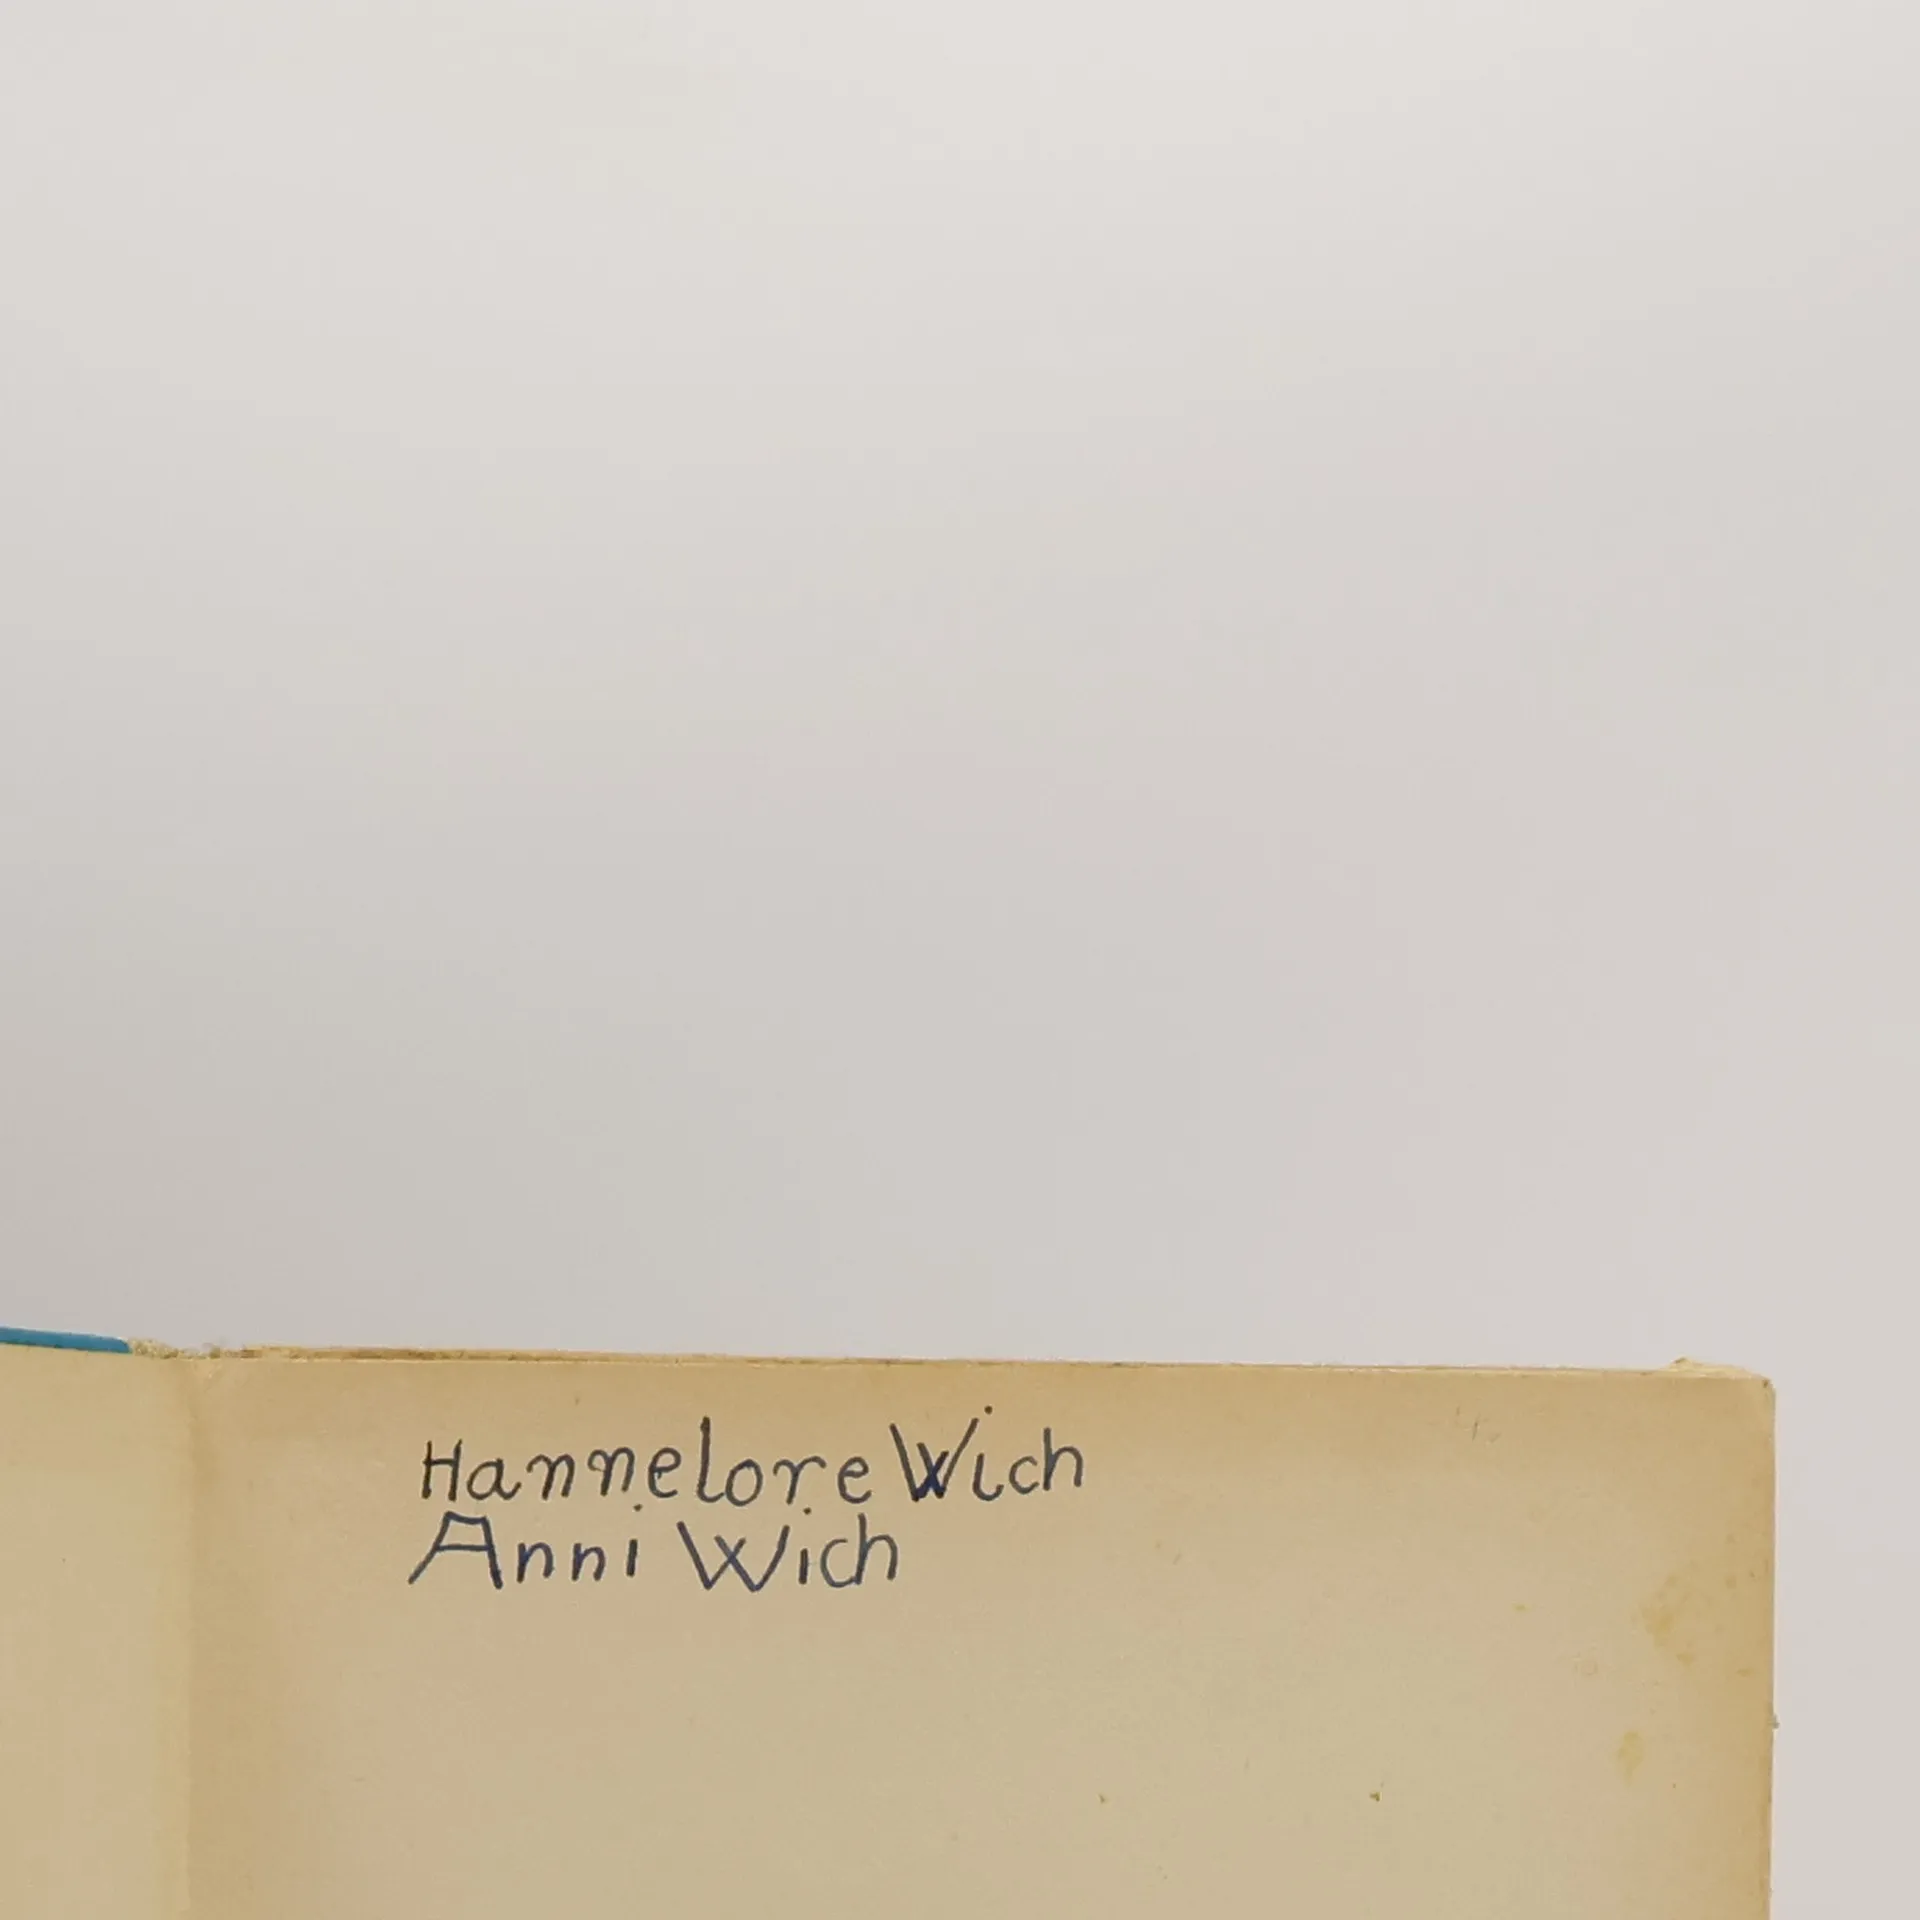 Hannelore Wich
Anni Wich